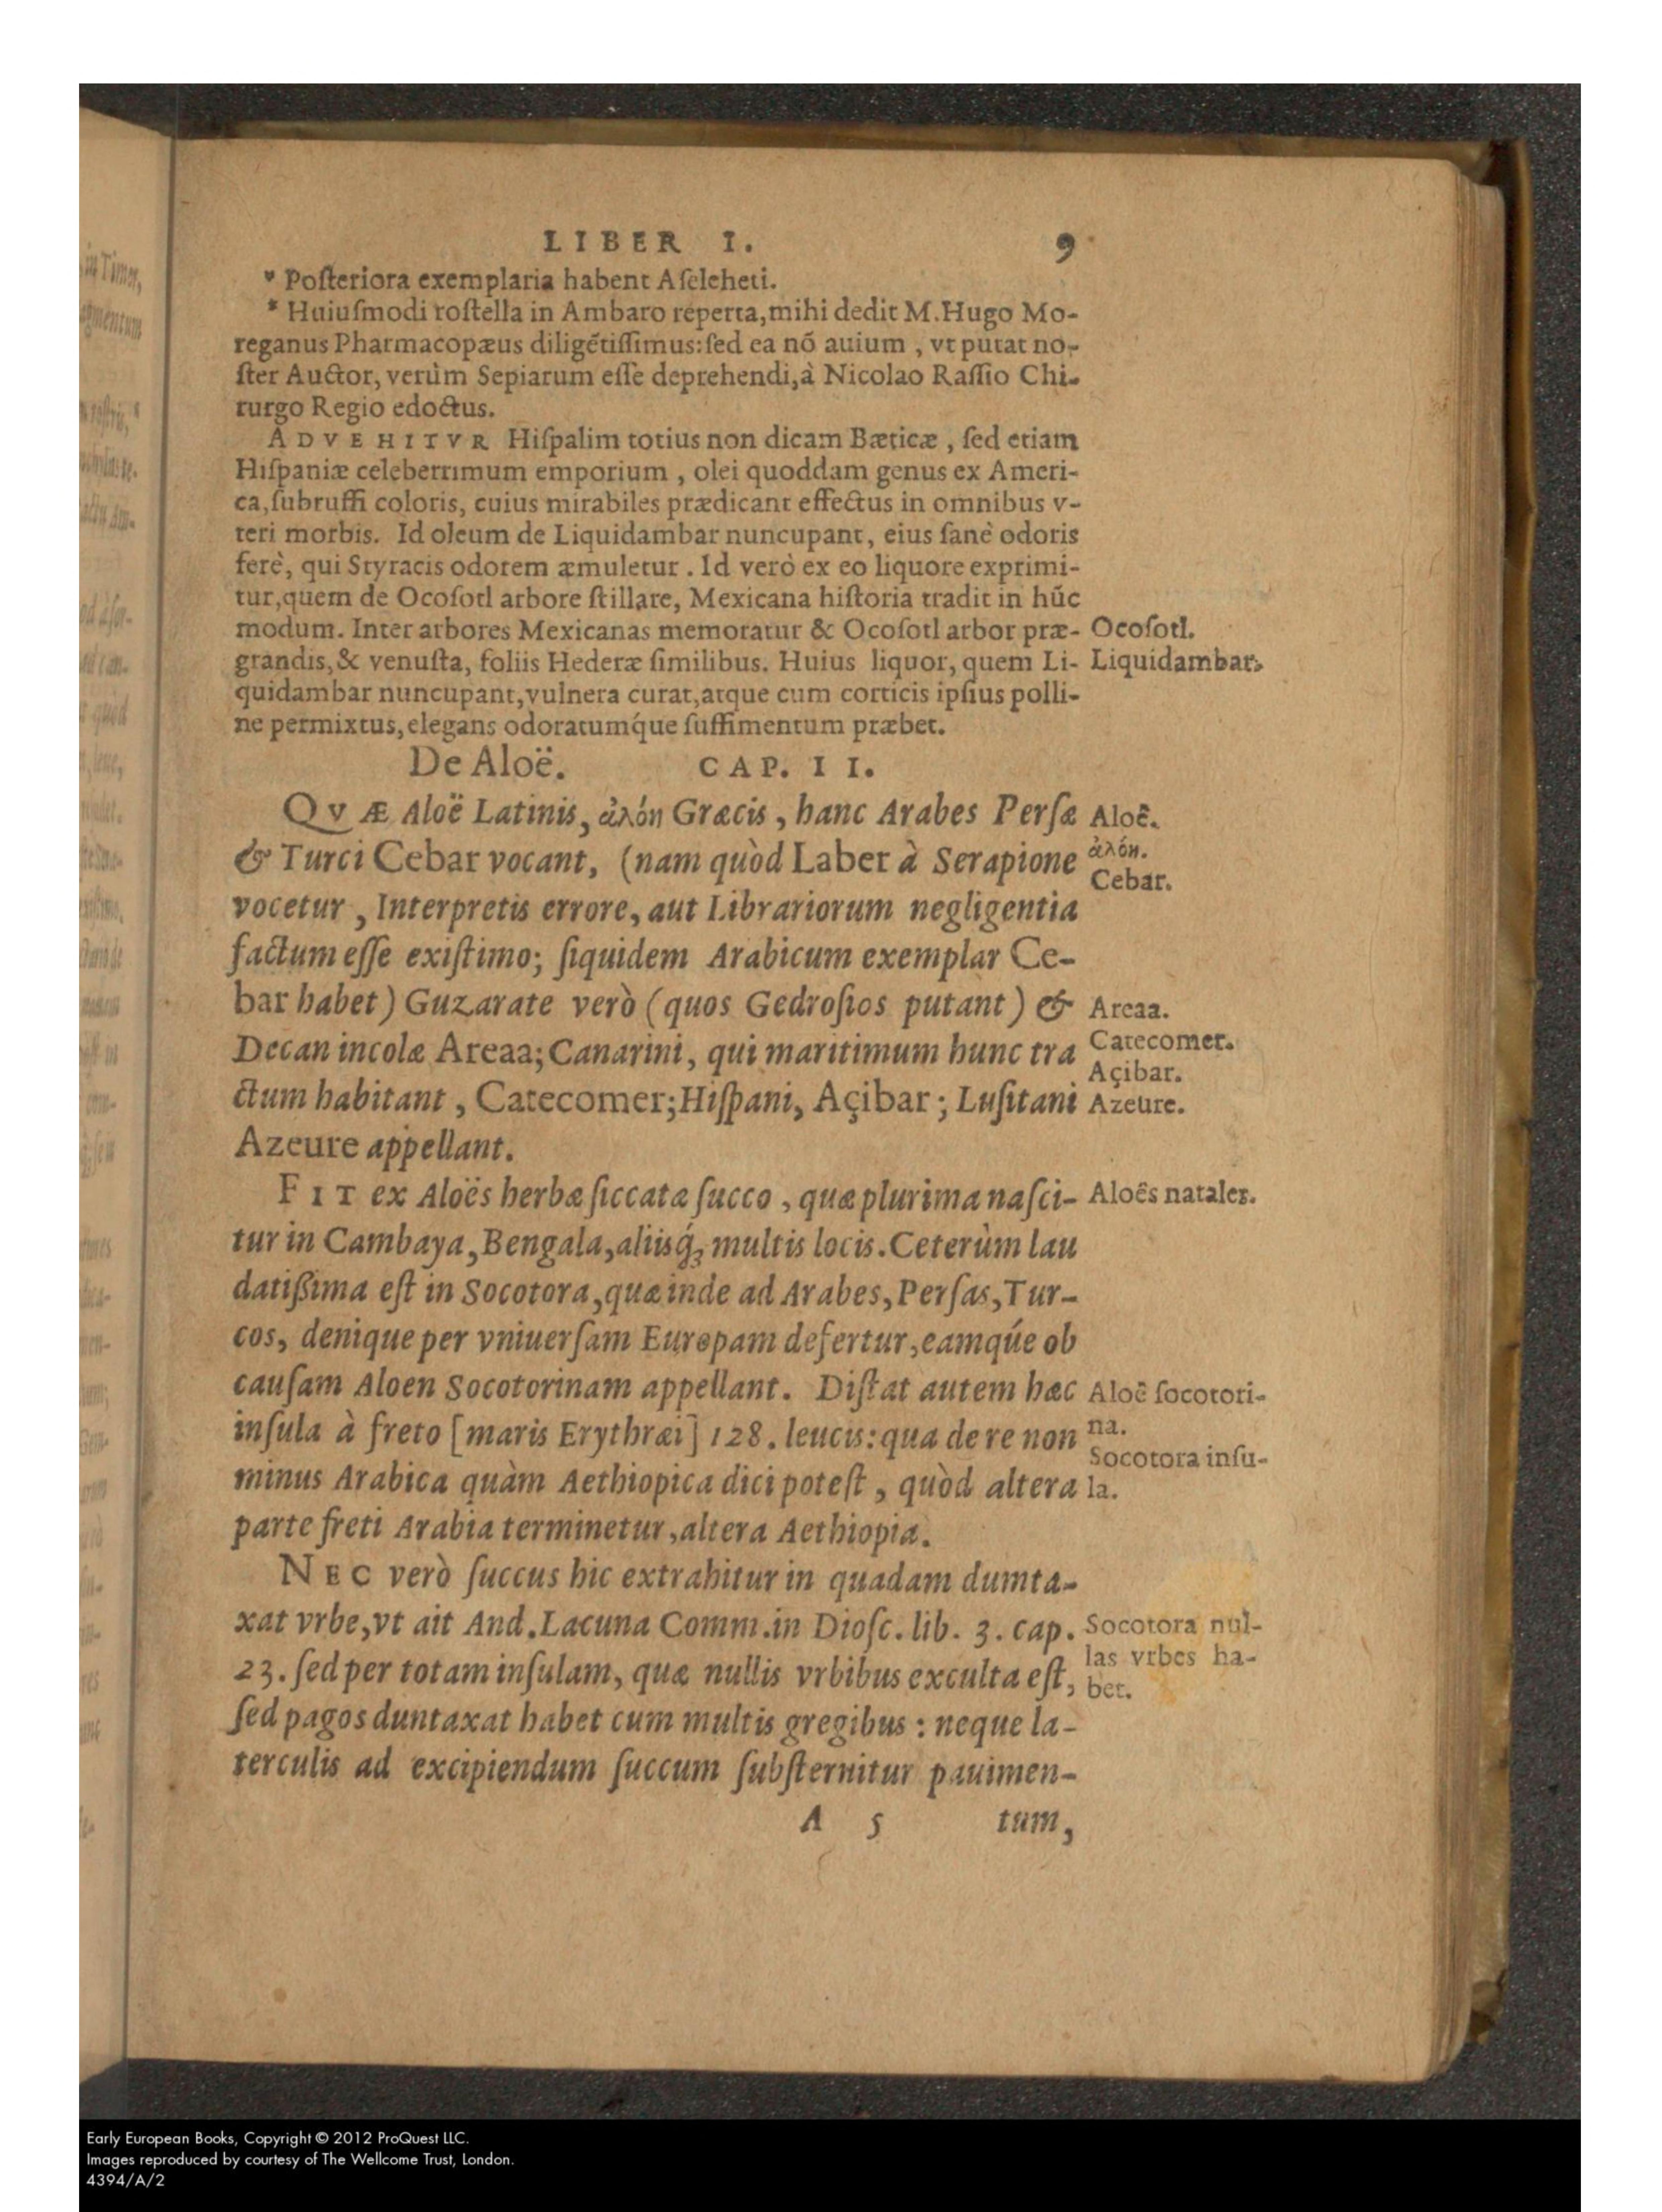 LIBER I. 9
ᵛ Poſteriora exemplaria habent Aſelcheti.
* Huiuſmodi roſtella in Ambaro reperta, mihi dedit M. Hugo Mo-
reganus Pharmacopæus diligẽtiſſimus: ſed ea nõ auium , vt putat no-
ſter Auctor, verùm Sepiarum eſſe deprehendi, à Nicolao Raſſio Chi-
rurgo Regio edoctus.
ADVEHITVR Hiſpalim totius non dicam Bæticæ , ſed etiam
Hiſpaniæ celeberrimum emporium , olei quoddam genus ex Ameri-
ca, ſubruffi coloris, cuius mirabiles prædicant effectus in omnibus v-
teri morbis. Id oleum de Liquidambar nuncupant, eius ſanè odoris
ferè, qui Styracis odorem æmuletur . Id verò ex eo liquore exprimi-
tur, quem de Ocoſotl arbore ſtillare, Mexicana hiſtoria tradit in hũc
modum. Inter arbores Mexicanas memoratur & Ocoſotl arbor præ- Ocoſotl.
grandis, & venuſta, foliis Hederæ ſimilibus. Huius liquor, quem Li- Liquidambar.
quidambar nuncupant, vulnera curat, atque cum corticis ipſius polli-
ne permixtus, elegans odoratumq́ue ſuffimentum præbet.
De Aloë. CAP. II.
QVÆ Aloë Latinis, ἀλόη Græcis , hanc Arabes Perſæ Aloë.
& Turci Cebar vocant, (nam quòd Laber à Serapione ἀλόη.
Cebar.
vocetur , Interpretis errore, aut Librariorum negligentia
factum eſſe exiſtimo; ſiquidem Arabicum exemplar Ce-
bar habet) Guzarate verò (quos Gedroſios putant) & Areaa.
Decan incolæ Areaa; Canarini, qui maritimum hunc tra Catecomer.
Açibar.
ctum habitant , Catecomer; Hiſpani, Açibar ; Luſitani Azeure.
Azeure appellant.
FIT ex Aloës herbæ ſiccatæ ſucco , quæ plurima naſci- Aloës natales.
tur in Cambaya, Bengala, aliisq́; multis locis. Ceterùm lau
datißima eſt in Socotora, quæ inde ad Arabes, Perſas, Tur-
cos, denique per vniuerſam Europam defertur, eamq́ue ob
cauſam Aloen Socotorinam appellant. Diſtat autem hæc Aloë ſocotori-
inſula à freto [maris Erythræi] 128. leucis: qua de re non na.
Socotora inſu-
minus Arabica quàm Aethiopica dici poteſt , quòd altera la.
parte freti Arabia terminetur, altera Aethiopia.
NEC verò ſuccus hic extrahitur in quadam dumta-
xat vrbe, vt ait And. Lacuna Comm. in Dioſc. lib. 3. cap. Socotora nul-
23. ſed per totam inſulam, quæ nullis vrbibus exculta eſt, las vrbes ha-
bet.
ſed pagos duntaxat habet cum multis gregibus : neque la-
terculis ad excipiendum ſuccum ſubſternitur pauimen-
A 5 tum,
Early European Books, Copyright © 2012 ProQuest LLC.
Images reproduced by courtesy of The Wellcome Trust, London.
4394/A/2